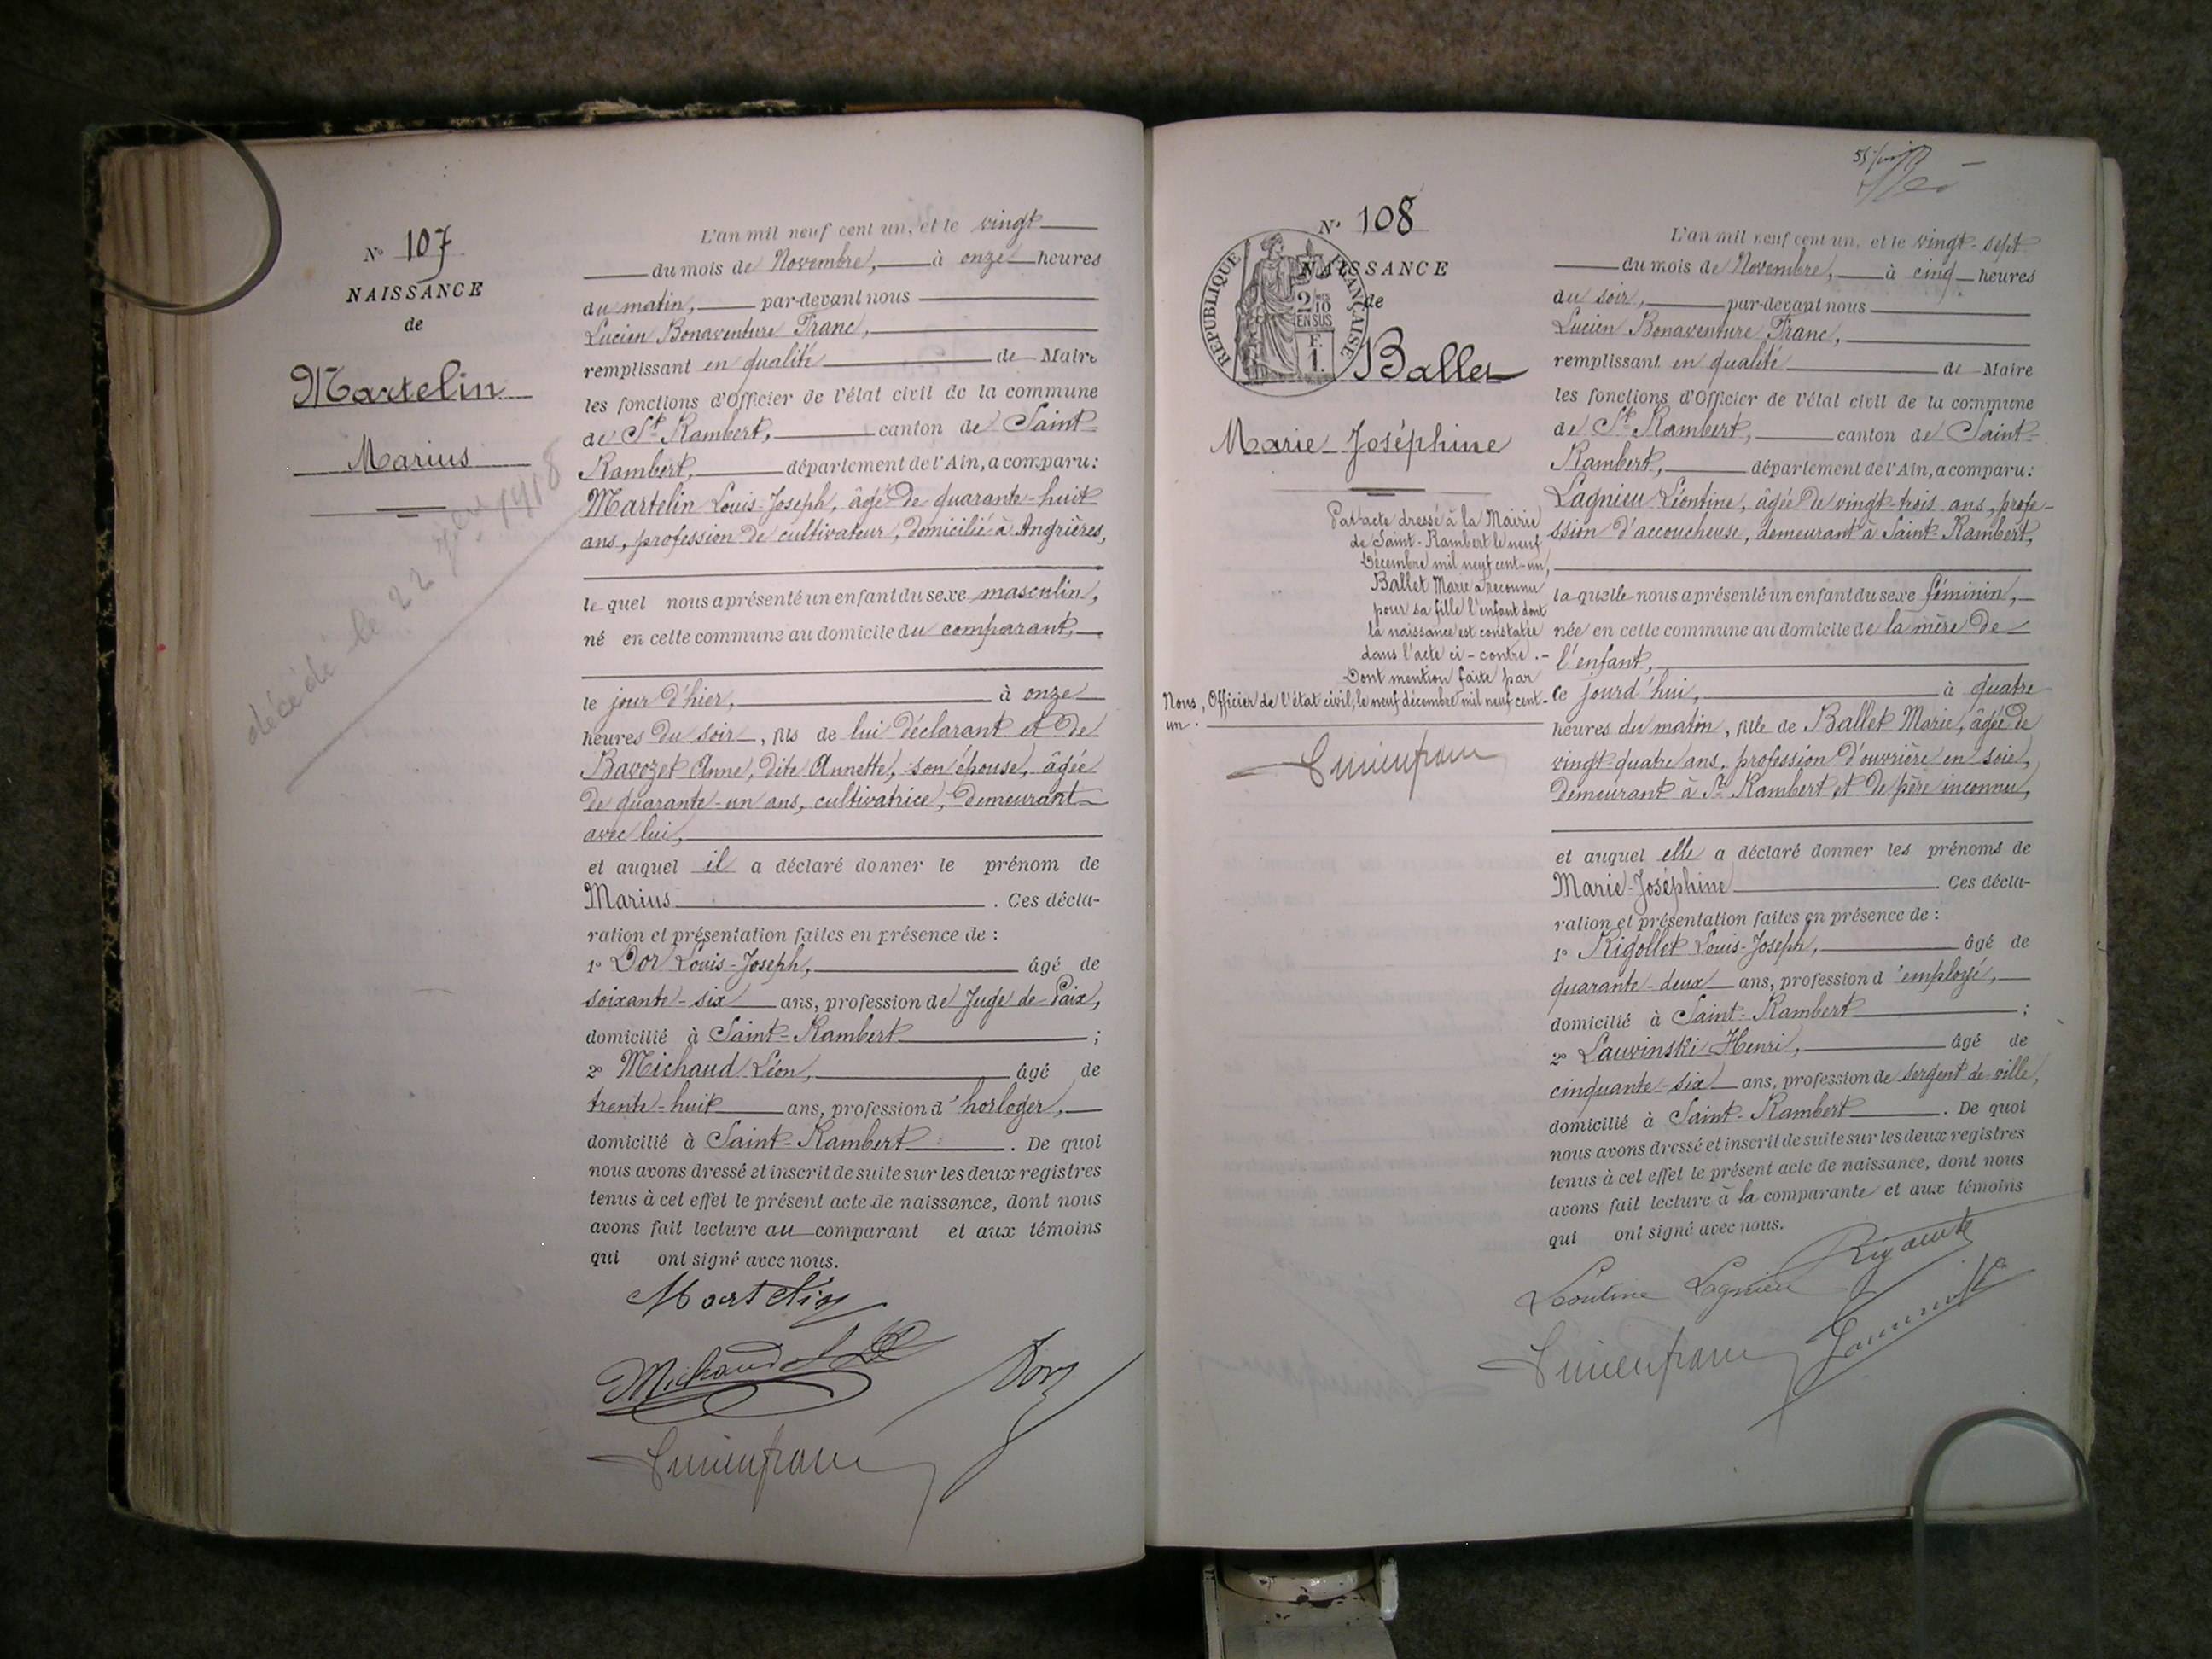 N° 107
NAISSANCE
de
Martelin
Marius
décédé le 22 1918
L'an mil neuf cent un, et le vingt
du mois de Novembre, à onze heures
du matin, par-devant nous
Lucien Bonaventure Franc,
remplissant en qualité de Maire
les fonctions d'Officier de l'état civil de la commune
de St Rambert, canton de Saint-
Rambert, département de l'Ain, a comparu:
Martelin Louis-Joseph, âgé de quarante-huit
ans, profession de cultivateur, domicilié à Angrières,
le quel nous a présenté un enfant du sexe masculin,
né en cette commune au domicile du comparant,
le jour d'hier, à onze
heures du soir, fils de lui déclarant et de
Bavozet Anne, dite Annette, son épouse, âgée
de quarante-un ans, cultivatrice, demeurant
avec lui,
et auquel il a déclaré donner le prénom de
Marius. Ces décla-
ration et présentation faites en présence de :
1° Dor Louis-Joseph, âgé de
soixante-six ans, profession de Juge de Paix,
domicilié à Saint-Rambert ;
2° Michaud Léon, âgé de
trente-huit ans, profession d'horloger,
domicilié à Saint-Rambert. De quoi
nous avons dressé et inscrit de suite sur les deux registres
tenus à cet effet le présent acte de naissance, dont nous
avons fait lecture au comparant et aux témoins
qui ont signé avec nous.
Martelin
Michaud L
Dor
Lucien franc
N° 108
NAISSANCE
de
REPUBLIQUE FRANÇAISE
2/10
EN SUS
F.
1.
Ballet
Marie Joséphine
Par acte dressé à la Mairie
de Saint-Rambert le neuf
Décembre mil neuf cent-un,
Ballet Marie a reconnu
pour sa fille l'enfant dont
la naissance est constatée
dans l'acte ci-contre.-
Dont mention faite par
Nous, Officier de l'état civil, le neuf décembre mil neuf cent-
un.
Lucien franc
L'an mil neuf cent un, et le vingt-sept
du mois de Novembre, à cinq heures
du soir, par-devant nous
Lucien Bonaventure Franc,
remplissant en qualité de Maire
les fonctions d'Officier de l'état civil de la commune
de St Rambert, canton de Saint-
Rambert, département de l'Ain, a comparu:
Lagnieu Léontine, âgée de vingt-trois ans, profe-
ssion d'accoucheuse, demeurant à Saint-Rambert,
la quelle nous a présenté un enfant du sexe féminin,
née en cette commune au domicile de la mère de
l'enfant,
ce jourd'hui, à quatre
heures du matin, fille de Ballet Marie, âgée de
vingt-quatre ans, profession d'ouvrière en soie,
demeurant à St Rambert et de père inconnu,
et auquel elle a déclaré donner les prénoms de
Marie-Joséphine. Ces décla-
ration et présentation faites en présence de :
1° Rigollet Louis-Joseph, âgé de
quarante-deux ans, profession d'employé,
domicilié à Saint-Rambert ;
2° Lauvinski Henri, âgé de
cinquante-six ans, profession de sergent de ville,
domicilié à Saint-Rambert. De quoi
nous avons dressé et inscrit de suite sur les deux registres
tenus à cet effet le présent acte de naissance, dont nous
avons fait lecture à la comparante et aux témoins
qui ont signé avec nous.
Léontine Lagnieu
Lucien franc